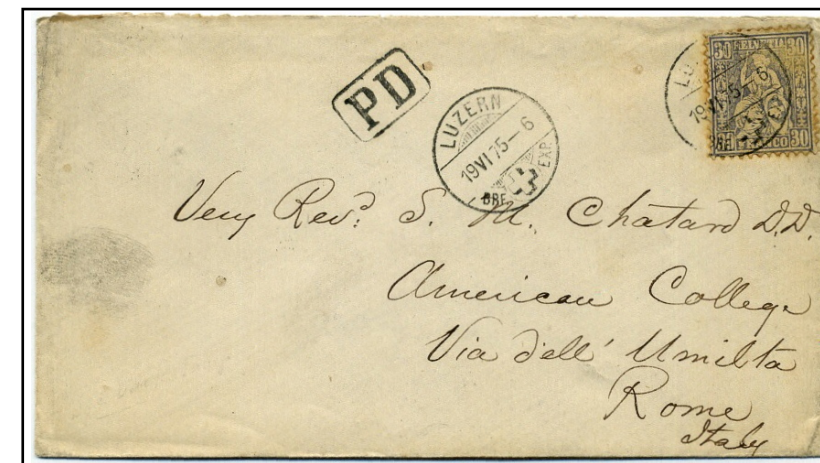 PD
LUZERN
19 VI 75 – 6
BRF EXP.
30 HELVETIA 30
FRANCO 30
LU
19 VI 75 – 6
Very Revd. S. M. Chatard D.D.
American College
Via dell' Umilta
Rome
Italy